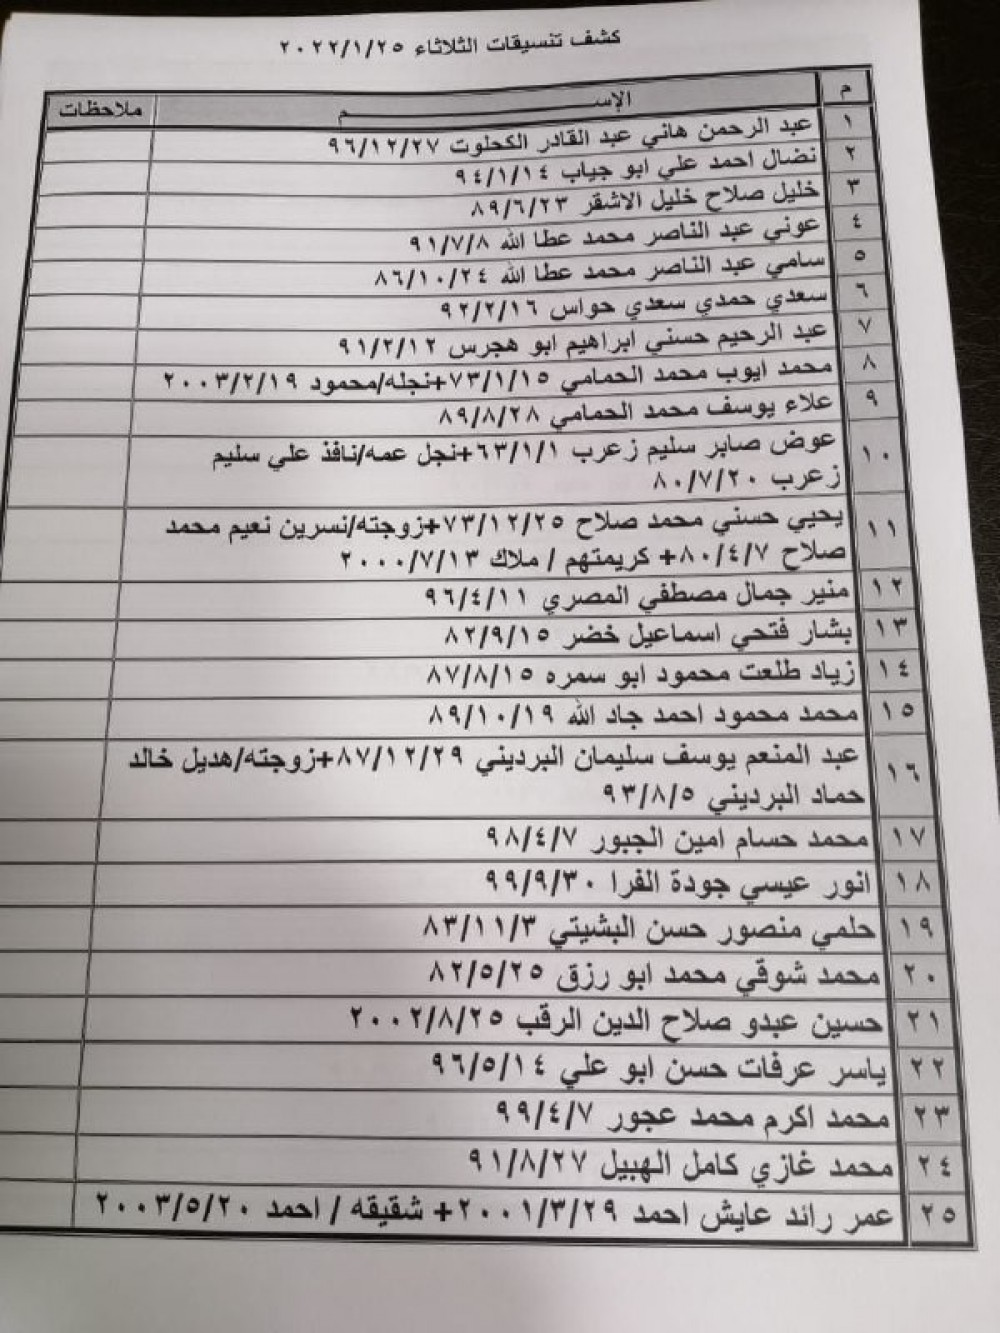 كشف تنسيقات الثلاثاء ٢٠٢٢/١/٢٥
م الإســـــــــم ملاحظات
١ عبد الرحمن هاني عبد القادر الكحلوت ٩٦/١٢/٢٧
٢ نضال احمد علي ابو جياب ٩٤/١/١٤
٣ خليل صلاح خليل الاشقر ٨٩/٦/٢٣
٤ عوني عبد الناصر محمد عطا الله ٩١/٧/٨
٥ سامي عبد الناصر محمد عطا الله ٨٦/١٠/٢٤
٦ سعدي حمدي سعدي حواس ٩٢/٢/١٦
٧ عبد الرحيم حسني ابراهيم ابو هجرس ٩١/٢/١٢
٨ محمد ايوب محمد الحمامي ٧٣/١/١٥+نجله/محمود ٢٠٠٣/٢/١٩
٩ علاء يوسف محمد الحمامي ٨٩/٨/٢٨
١٠ عوض صابر سليم زعرب ٦٣/١/١+نجل عمه/نافذ علي سليم
زعرب ٨٠/٧/٢٠
١١ يحيي حسني محمد صلاح ٧٣/١٢/٢٥+زوجته/نسرين نعيم محمد
صلاح ٨٠/٤/٧+ كريمتهم / ملاك ٢٠٠٠/٧/١٣
١٢ منير جمال مصطفي المصري ٩٦/٤/١١
١٣ بشار فتحي اسماعيل خضر ٨٢/٩/١٥
١٤ زياد طلعت محمود ابو سمره ٨٧/٨/١٥
١٥ محمد محمود احمد جاد الله ٨٩/١٠/١٩
١٦ عبد المنعم يوسف سليمان البرديني ٨٧/١٢/٢٩+زوجته/هديل خالد
حماد البرديني ٩٣/٨/٥
١٧ محمد حسام امين الجبور ٩٨/٤/٧
١٨ انور عيسي جودة الفرا ٩٩/٩/٣٠
١٩ حلمي منصور حسن البشيتي ٨٣/١١/٣
٢٠ محمد شوقي محمد ابو رزق ٨٢/٥/٢٥
٢١ حسين عبدو صلاح الدين الرقب ٢٠٠٢/٨/٢٥
٢٢ ياسر عرفات حسن ابو علي ٩٦/٥/١٤
٢٣ محمد اكرم محمد عجور ٩٩/٤/٧
٢٤ محمد غازي كامل الهبيل ٩١/٨/٢٧
٢٥ عمر رائد عايش احمد ٢٠٠١/٣/٢٩+ شقيقه / احمد ٢٠٠٣/٥/٢٠